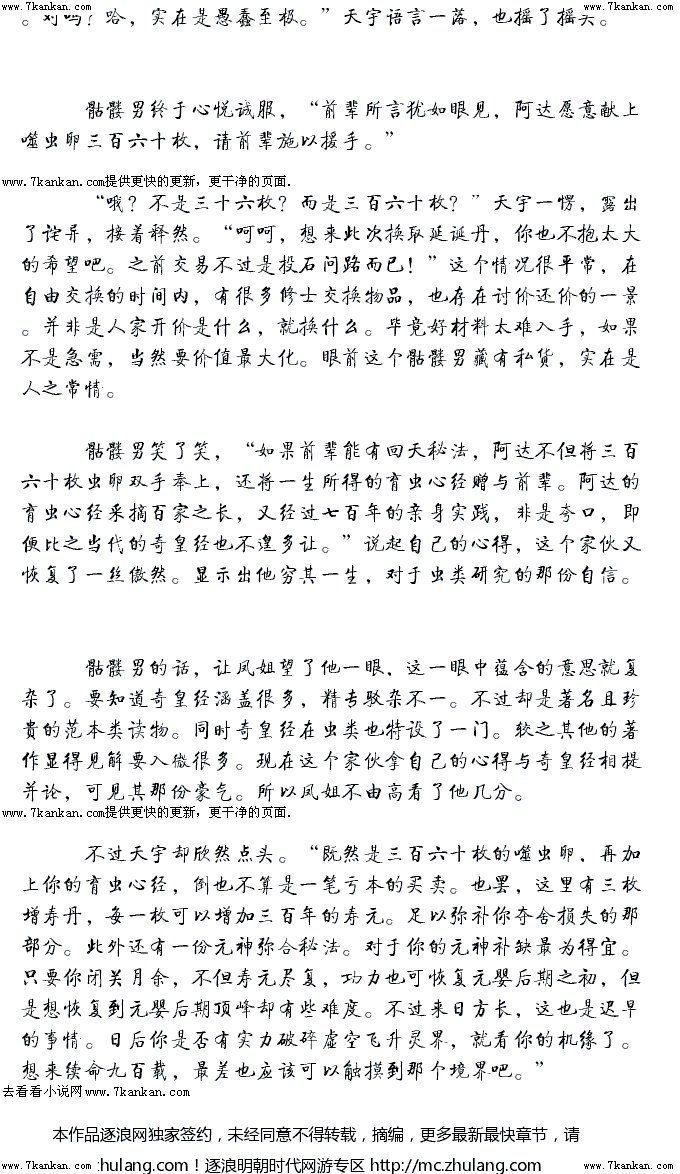 www.7kankan.com www.7kankan.com
。对吗？哈，实在是愚蠢至极。”天宇语言一落，也摇了摇头。
骷髅男终于心悦诚服，“前辈所言犹如眼见，阿达愿意献上
噬虫卵三百六十枚，请前辈施以援手。”
www.7kankan.com提供更快的更新，更干净的页面.
“哦？不是三十六枚？而是三百六十枚？”天宇一愣，露出
了诧异，接着释然。“呵呵，想来此次换取延诞丹，你也不抱太大
的希望吧。之前交易不过是投石问路而已！”这个情况很平常，在
自由交换的时间内，有很多修士交换物品，也存在讨价还价的一景
。并非是人家开价是什么，就换什么。毕竟好材料太难入手，如果
不是急需，当然要价值最大化。眼前这个骷髅男藏有私货，实在是
人之常情。
骷髅男笑了笑，“如果前辈能有回天秘法，阿达不但将三百
六十枚虫卵双手奉上，还将一生所得的育虫心经赠与前辈。阿达的
育虫心经采摘百家之长，又经过七百年的亲身实践，非是夸口，即
便比之当代的奇皇经也不遑多让。”说起自己的心得，这个家伙又
恢复了一丝傲然。显示出他穷其一生，对于虫类研究的那份自信。
骷髅男的话，让凤姐望了他一眼，这一眼中蕴含的意思就复
杂了。要知道奇皇经涵盖很多，精专驳杂不一。不过却是著名且珍
贵的范本类读物。同时奇皇经在虫类也特设了一门。较之其他的著
作显得见解要入微很多。现在这个家伙拿自己的心得与奇皇经相提
并论，可见其那份豪气。所以凤姐不由高看了他几分。
www.7kankan.com提供更快的更新，更干净的页面.
不过天宇却欣然点头。“既然是三百六十枚的噬虫卵，再加
上你的育虫心经，倒也不算是一笔亏本的买卖。也罢，这里有三枚
增寿丹，每一枚可以增加三百年的寿元。足以弥补你夺舍损失的那
部分。此外还有一份元神弥合秘法。对于你的元神补缺最为得宜。
只要你闭关月余，不但寿元尽复，功力也可恢复元婴后期之初，但
是想恢复到元婴后期顶峰却有些难度。不过来日方长，这也是迟早
的事情。日后你是否有实力破碎虚空飞升灵界，就看你的机缘了。
想来续命九百载，最差也应该可以触摸到那个境界吧。”
去看看小说网www.7kankan.com
本作品逐浪网独家签约，未经同意不得转载，摘编，更多最新最快章节，请
www.7kankan.com zhulang.com！逐浪明朝时代网游专区 http://mc.zhulang.com www.7kankan.com